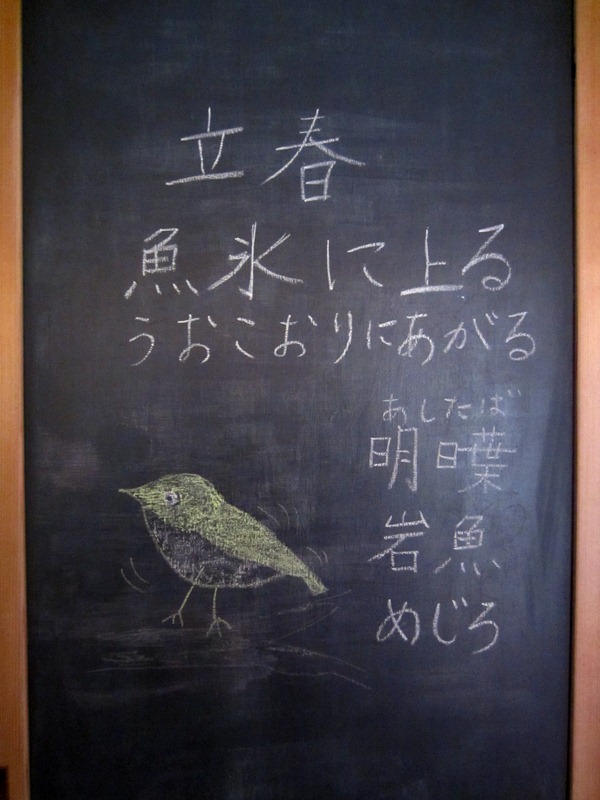 立春
魚氷に上る
うおこおりにあがる
あしたば
明日葉
岩魚
めじろ